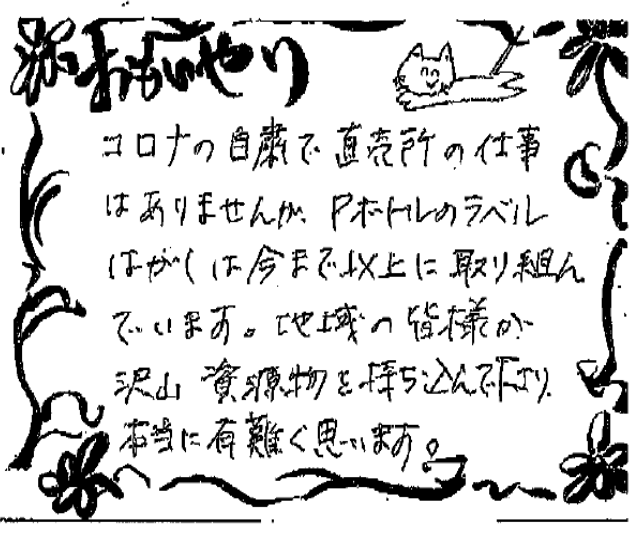 おもいやり
コロナの自粛で直売所の仕事
はありませんが、Pボトルのラベル
はがしは今まで以上に取り組ん
でいます。地域の皆様が
沢山資源物を持ち込んで下さり
本当に有難く思います。